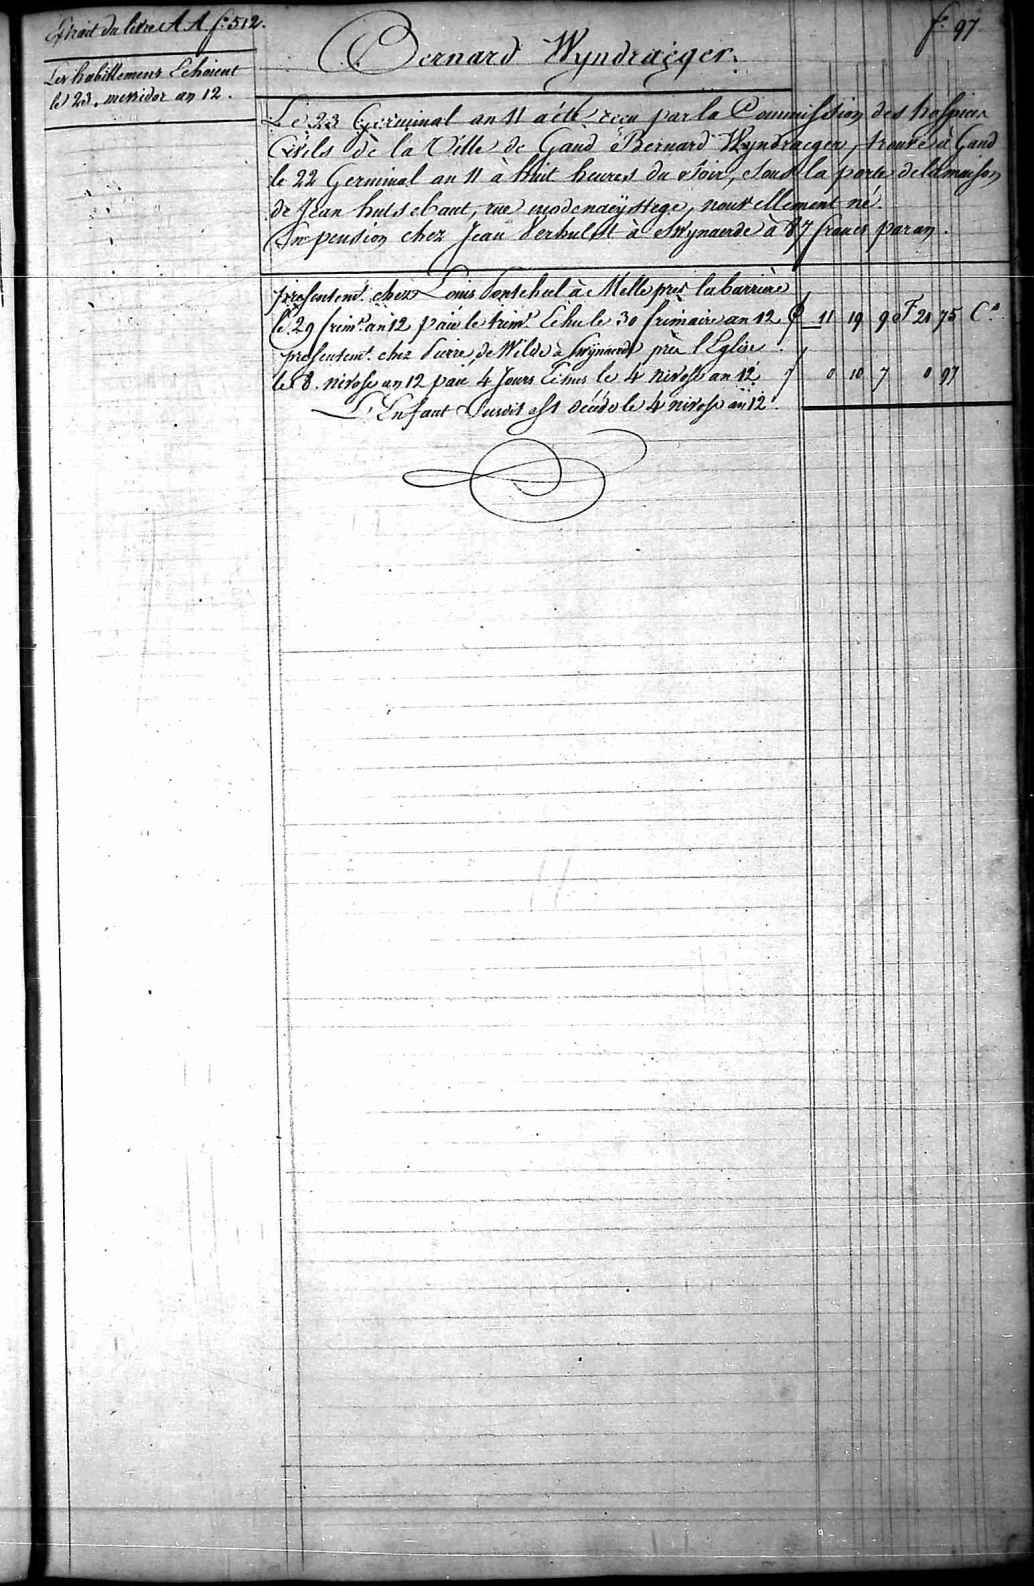 Extrait du livre A A f° 512.
f° 97
Les habillemens Echoient
le 23. messidor an 12.
Bernard Wyndraeger.
Le 23 Germinal an 11 a été recu par la Commission des hospices
Civils de la Ville de Gand Bernard Wyndraeger, trouvé à Gand
le 22 Germinal an 11 à huit heures du soir, sous la porte de la maison
de Jean hulsebaut, rue nouvellement né.
En pension chez Jean Verhulst à Swynaerde à 87 francs par an.
présentemt. chez Louis à Melle près la barrière
le 29 frimre an 12 païé le trimre Echu le 30 frimaire an 12 11 19 9 F 21 75 Cs
présentemt. chez Pierre de Wilde à Swynaerde près l'Eglise
le 8. nivose an 12 païé 4 Jours Echus le 4 nivose an 12 0 10 7 0 97
L'Enfant susdit est décédé le 4 nivose an 12.